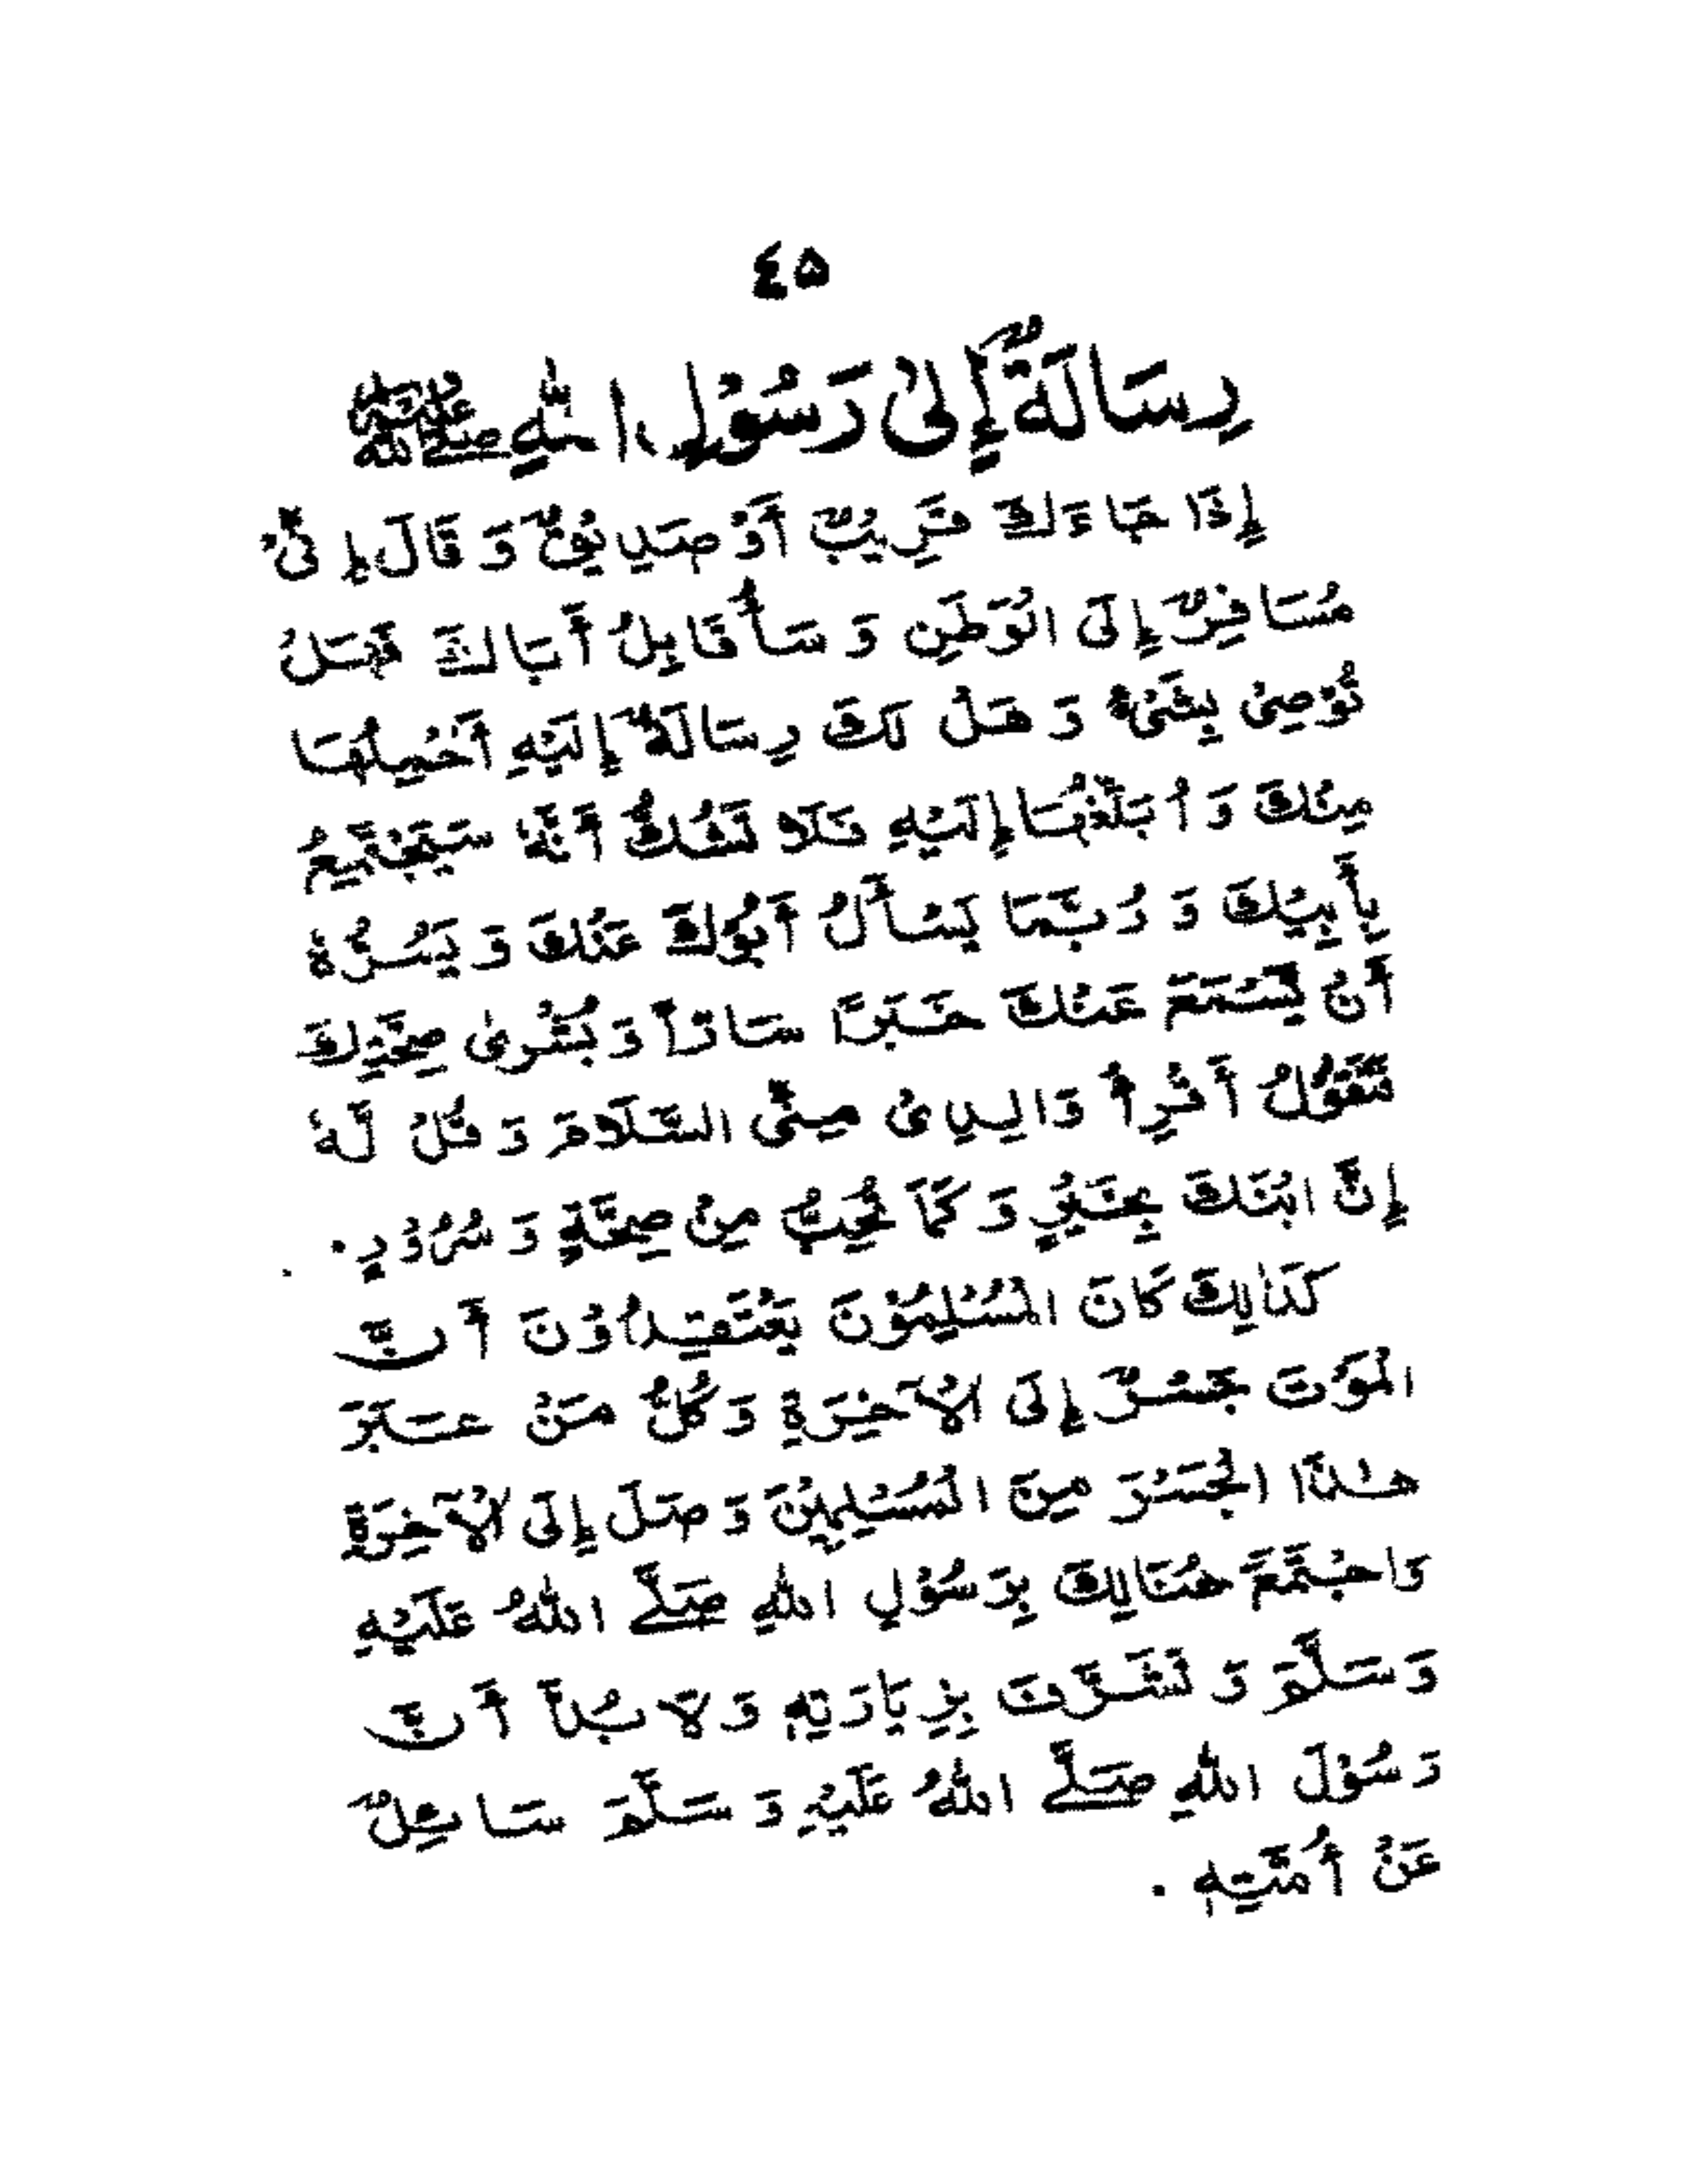 ٤٥
رِسَالَةٌ إِلىٰ رَسُوْلِ اللّٰهِ ﷺ
إِذَا جَاءَكَ قَرِيْبٌ أَوْ صَدِيْقٌ وَ قَالَ إِنِّيْ
مُسَافِرٌ إِلَى الْوَطَنِ وَ سَأُقَابِلُ أَبَاكَ فَهَلْ
تُوْصِيْ بِشَيْءٍ وَ هَلْ لَكَ رِسَالَةٌ إِلَيْهِ أَحْمِلُهَا
مِنْكَ وَ أُبَلِّغُهَا إِلَيْهِ فَلَا تَشُكُّ أَنَّهُ سَيَجْتَمِعُ
بِأَبِيْكَ وَ رُبَّمَا يَسْأَلُ أَبُوْكَ عَنْكَ وَ يَسُرُّهُ
أَنْ يَسْمَعَ عَنْكَ خَبَرًا سَارًّا وَ بُشْرىٰ صِحَّتِكَ
فَتَقُوْلُ أَقْرِأْ وَالِدِيْ مِنِّي السَّلَامَ وَ قُلْ لَهُ
إِنَّ ابْنَكَ بِخَيْرٍ وَ كَمَا تُحِبُّ مِنْ صِحَّةٍ وَ سُرُوْرٍ .
كَذٰلِكَ كَانَ الْمُسْلِمُوْنَ يَعْتَقِدُوْنَ أَنَّ
الْمَوْتَ جَسْرٌ إِلَى الْآخِرَةِ وَ كُلُّ مَنْ عَبَرَ
هٰذَا الْجَسْرَ مِنَ الْمُسْلِمِيْنَ وَصَلَ إِلَى الْآخِرَةِ
وَاجْتَمَعَ هُنَالِكَ بِرَسُوْلِ اللهِ صَلَّى اللهُ عَلَيْهِ
وَسَلَّمَ وَ تَشَرَّفَ بِزِيَارَتِهِ وَ لَا بُدَّ أَنَّ
رَسُوْلَ اللهِ صَلَّى اللهُ عَلَيْهِ وَ سَلَّمَ سَائِلٌ
عَنْ أُمَّتِهِ .